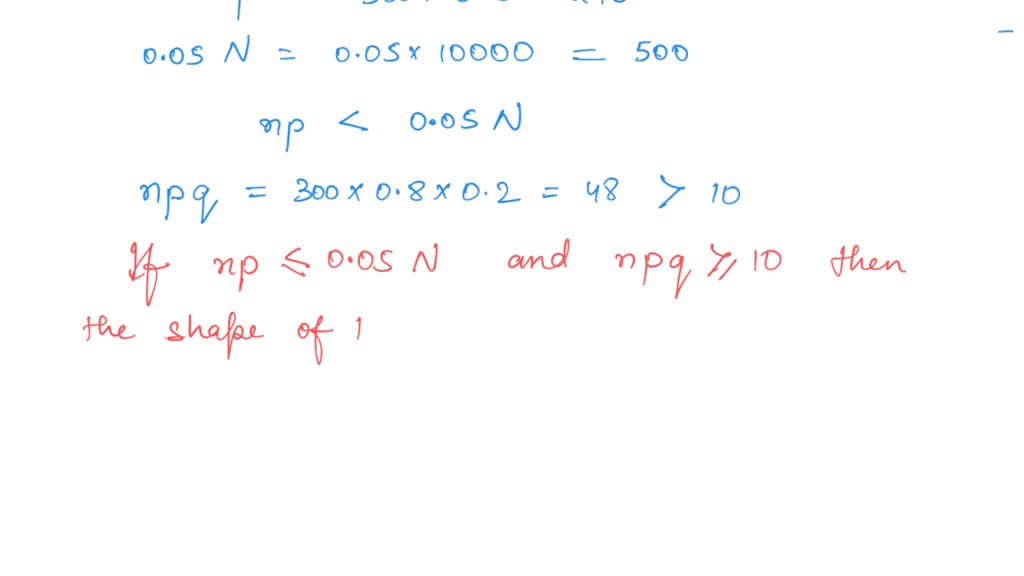 0.05 N = 0.05 x 10000 = 500
np < 0.05 N
npq = 300 x 0.8 x 0.2 = 48 > 10
If np ≤ 0.05 N and npq ≥ 10 then
the shape of